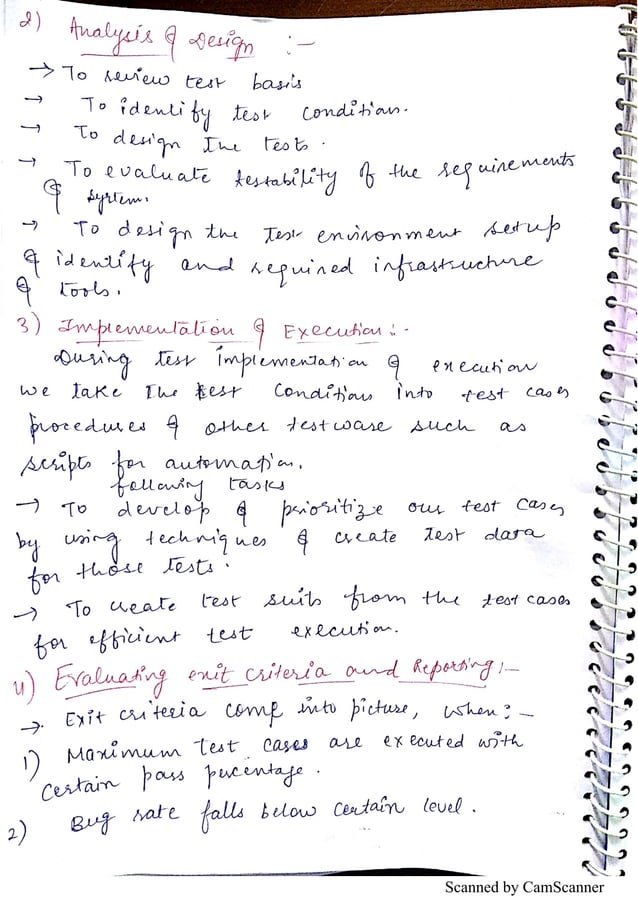 2) Analysis & Design :-
→ To review test basis
→ To identify test condition.
→ To design the tests.
→ To evaluate testability of the requirements
& system.
→ To design the test environment setup
& identify and required infrastructure
& tools.
3) Implementation & Execution:-
During test implementation & execution
we take the test conditions into test cases
procedures & other testware such as
scripts for automation.
following tasks
→ To develop & prioritize our test cases
by using techniques & create test data
for those tests.
→ To create test suits from the test cases
for efficient test execution.
4) Evaluating exit criteria and Reporting:-
→ Exit criteria come into picture, when:-
1) Maximum test cases are executed with
certain pass pucentage.
2) Bug rate falls below certain level.
Scanned by CamScanner